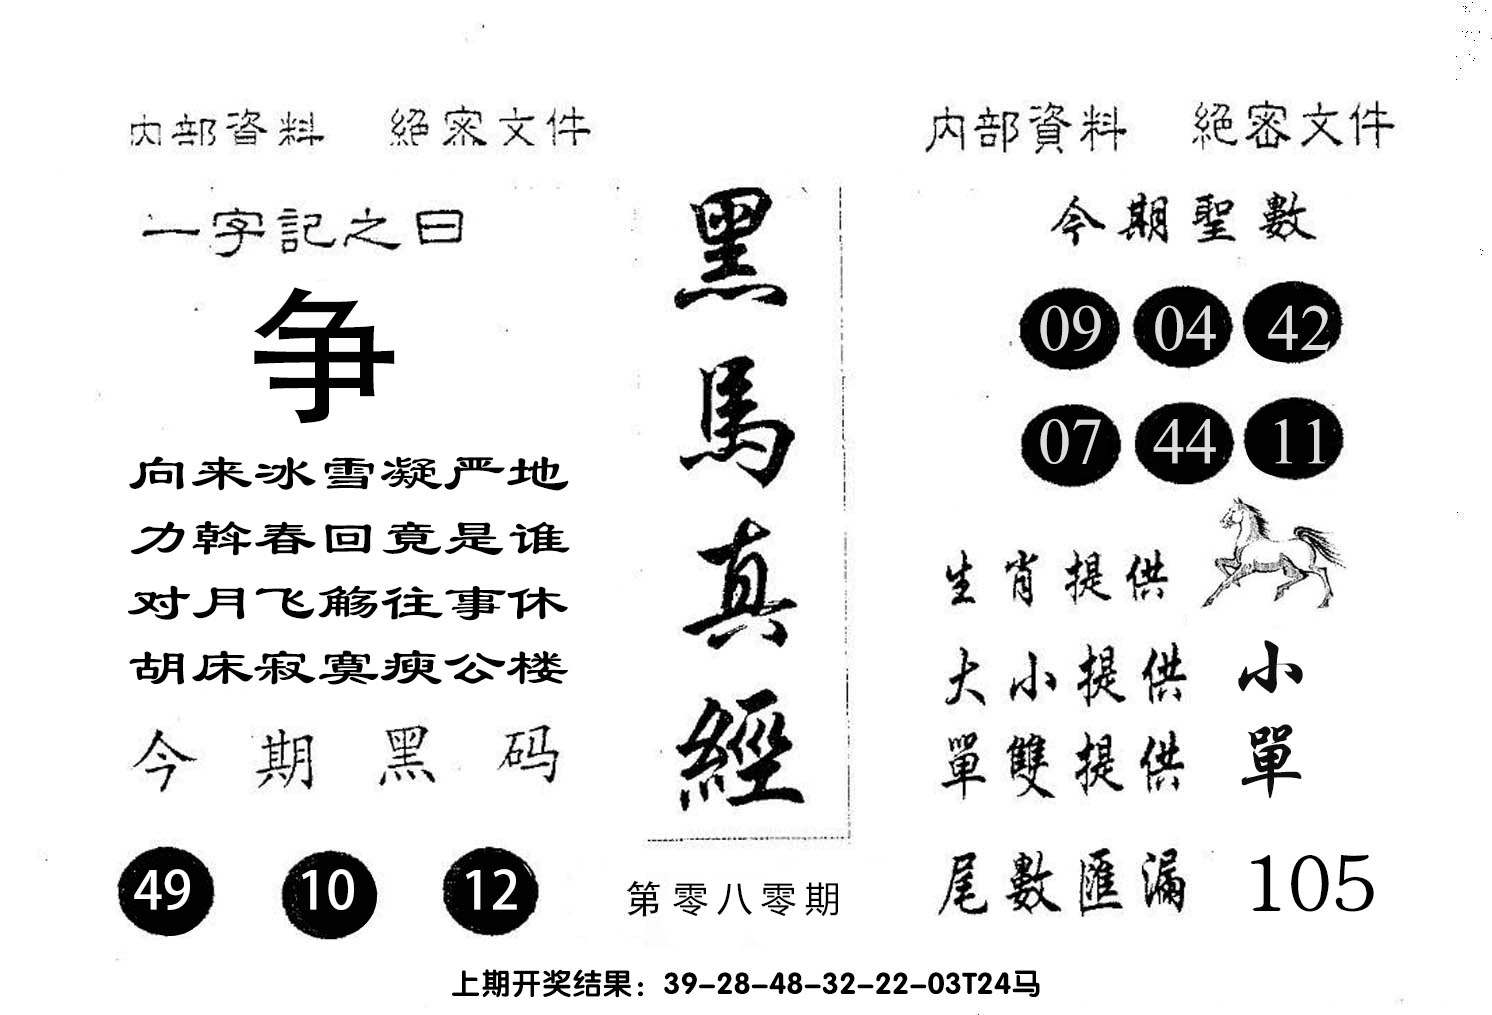 内部資料 絕密文件
一字記之曰
争
向来冰雪凝严地
力斡春回竟是谁
对月飞觞往事休
胡床寂寞瘐公楼
今期黑码
49 10 12
黑馬真經
第零八零期
内部資料 絕密文件
今期聖數
09 04 42
07 44 11
生肖提供
大小提供 小
單雙提供 單
尾數匯漏 105
上期开奖结果：39-28-48-32-22-03T24马